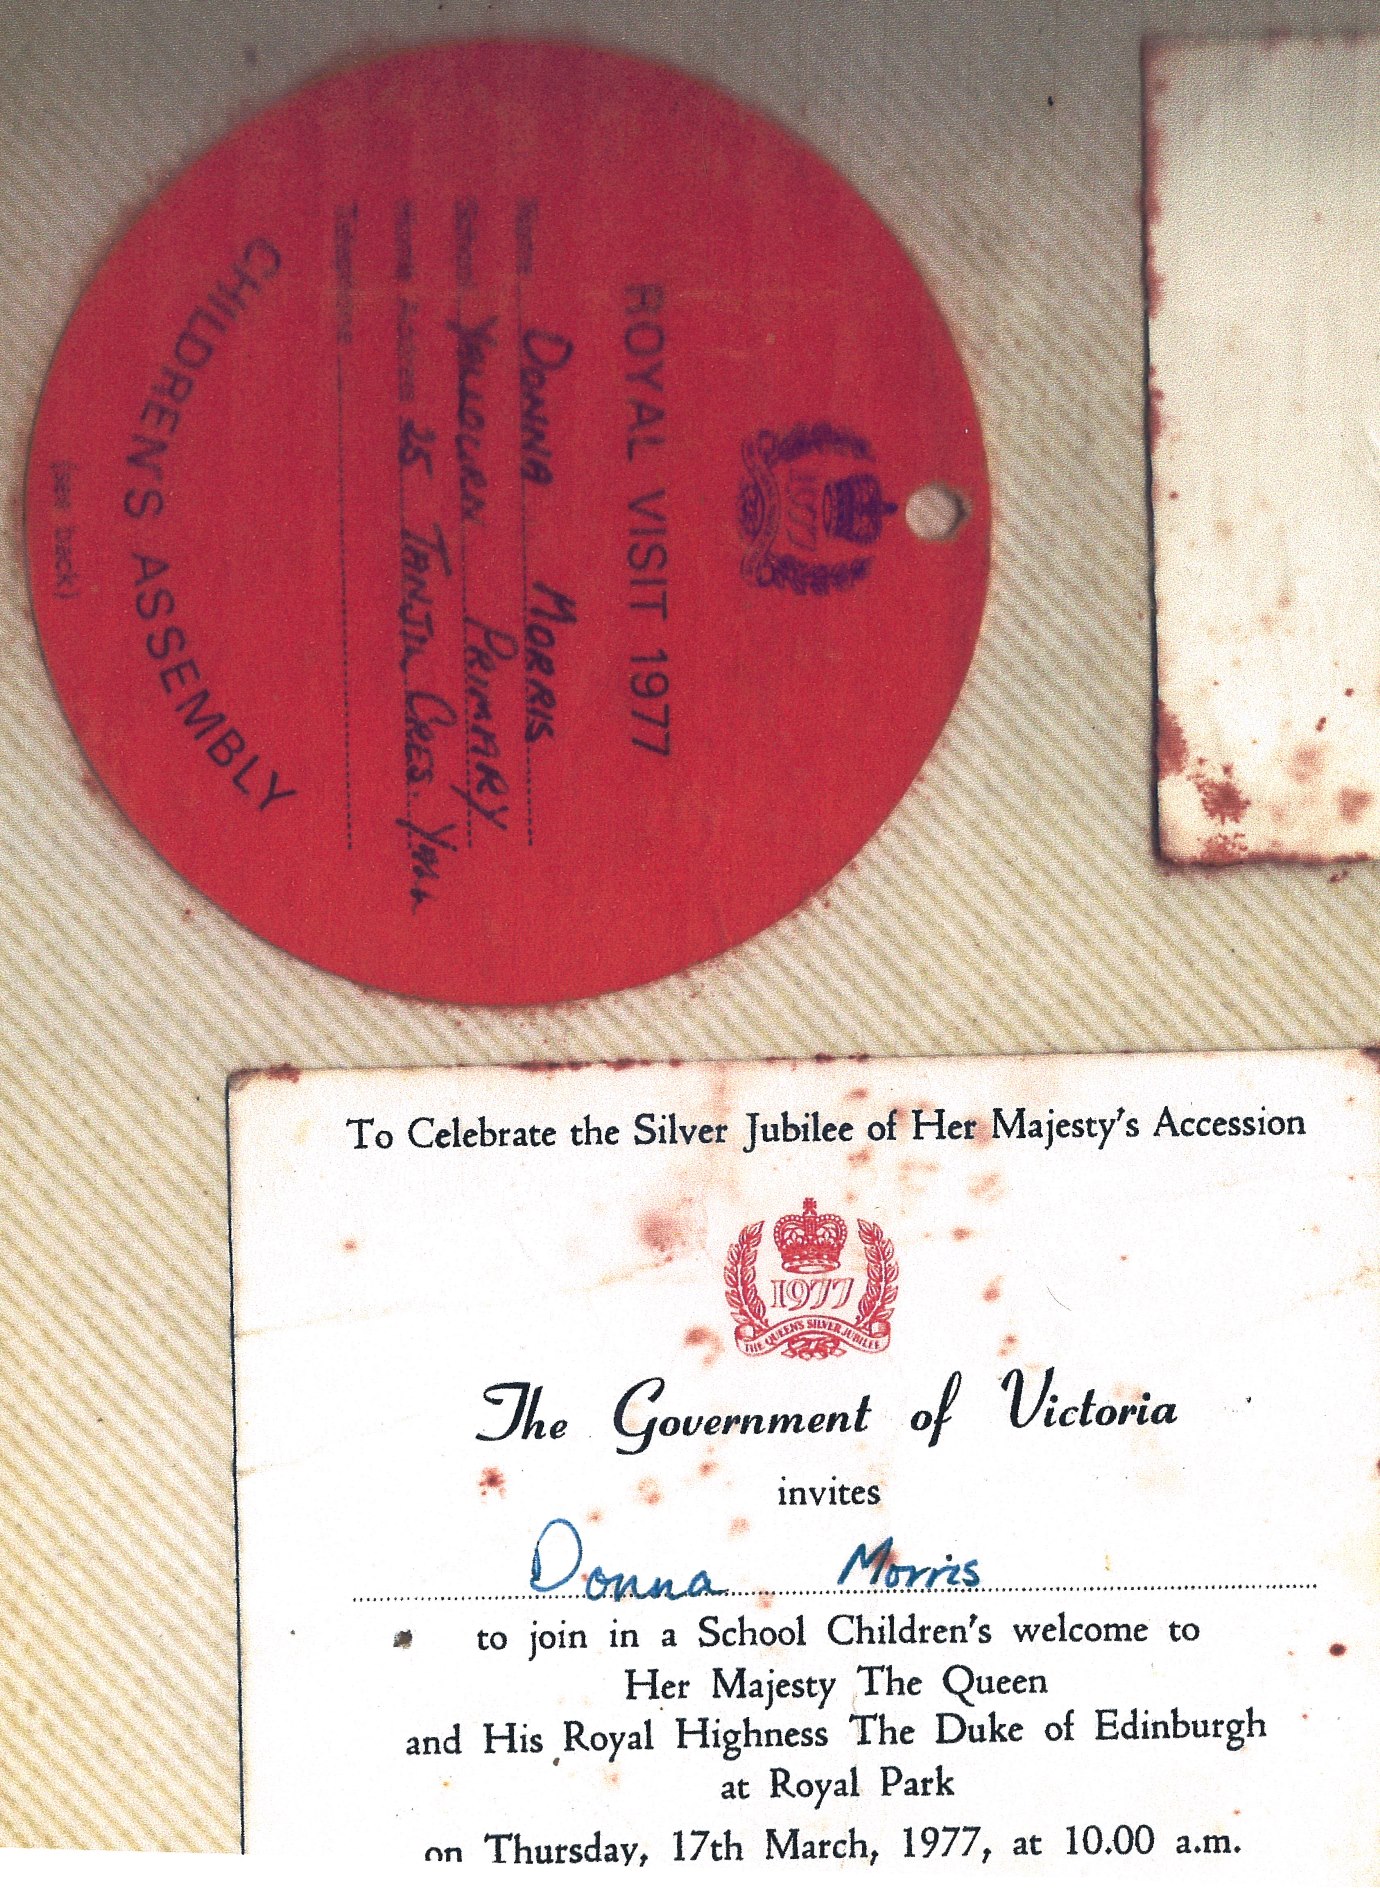 1977
ROYAL VISIT 1977
Name DONNA MORRIS
School YALLOURN PRIMARY
Home Address 25 TANJIL CRES.
Telephone
CHILDREN'S ASSEMBLY
(see back)
To Celebrate the Silver Jubilee of Her Majesty's Accession
1977
THE QUEEN'S SILVER JUBILEE
The Government of Victoria
invites
Donna Morris
to join in a School Children's welcome to
Her Majesty The Queen
and His Royal Highness The Duke of Edinburgh
at Royal Park
on Thursday, 17th March, 1977, at 10.00 a.m.